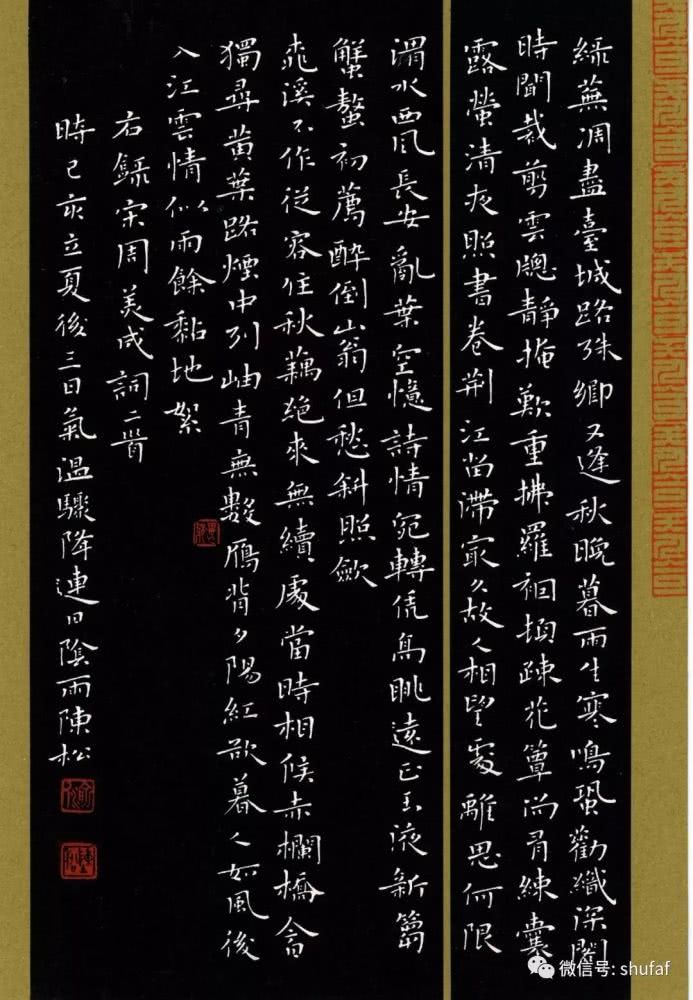 綠蕪凋盡臺城路殊鄉又逢秋晚暮雨生寒鳴蛩勸織深閣
時聞裁剪雲窗靜掩歎重拂羅裀頓疎花簟尚有練囊
露螢清夜照書卷荊江留滯最久故人相望處離思何限
渭水西風長安亂葉空憶詩情宛轉凭高眺遠正玉液新篘
蟹螯初薦醉倒山翁但愁斜照斂
桃溪不作從容住秋藕絕來無續處當時相候赤欄橋今日
獨尋黃葉路煙中列岫青無數雁背夕陽紅欲暮人如風後
入江雲情似雨餘黏地絮
右錄宋周美成詞二首
時己亥立夏後三日氣溫驟降連日陰雨陳松
微信号: shufaf